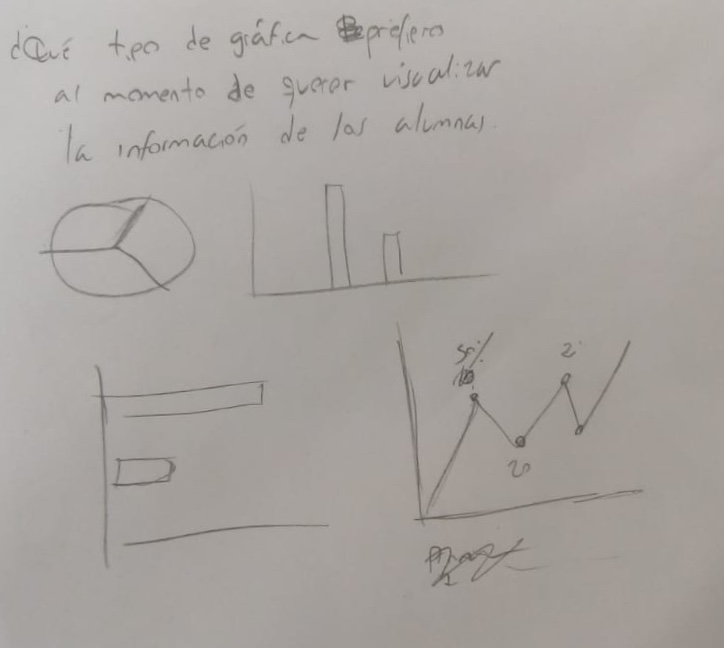 ¿Qué tipo de gráfica prefiero
al momento de querer visualizar
la información de los alumnas.
50%
2
20